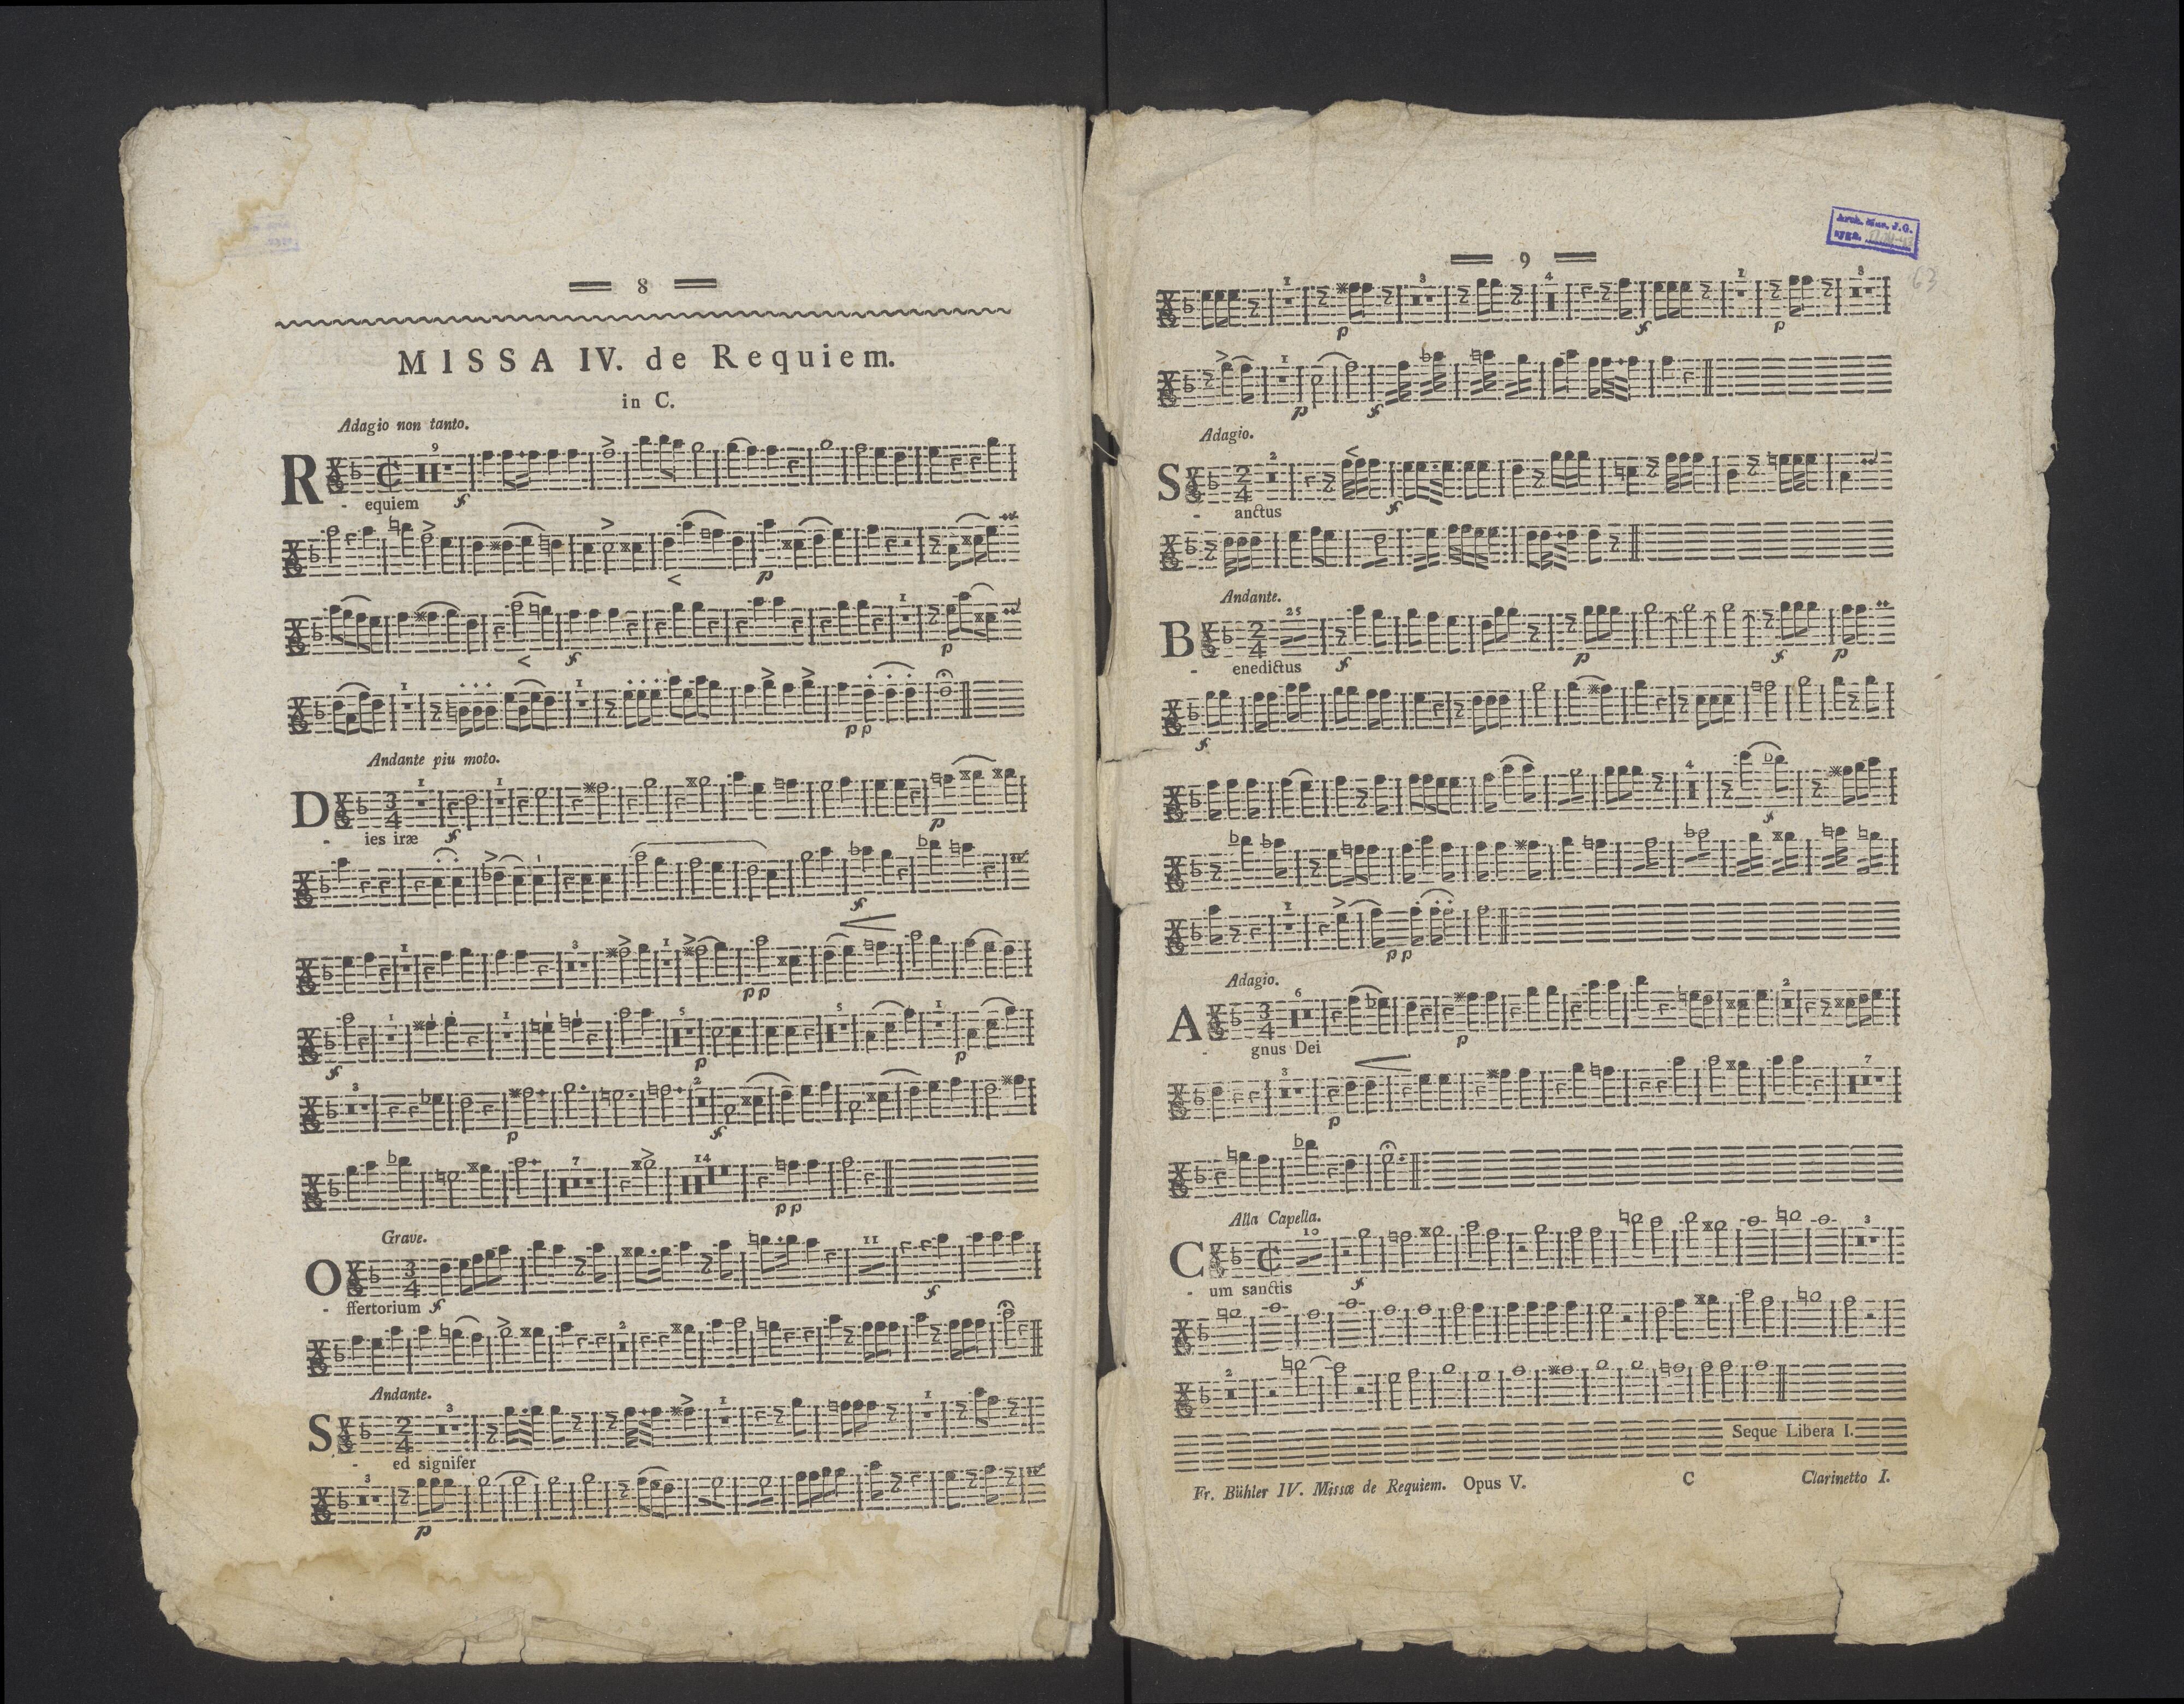 8
MISSA IV. de Requiem.
in C.
Adagio non tanto.
R
- equiem
Andante piu moto.
D
- ies iræ
Grave.
O
- ffertorium
Andante.
S
- ed signifer
Arch. Mus. J.G.
sygn.
9
63
Adagio.
S
- anctus
Andante.
B
- enedictus
Adagio.
A
- gnus Dei
Alla Capella.
C
- um sanctis
Seque Libera I.
Fr. Bühler IV. Missæ de Requiem. Opus V. C Clarinetto I.